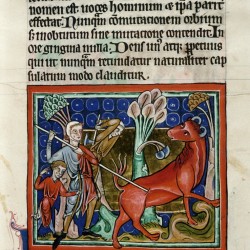 nomen est uoces hominum & ipsa parit
effectat. Nunquam comutationem orbium
s; inobtutum sine mutatione contendit. In
ore gingiua nulla. Dens un' atq; perpetuus
qui ut nunquam retundatur naturaliter cap
sularum modo clauditur.